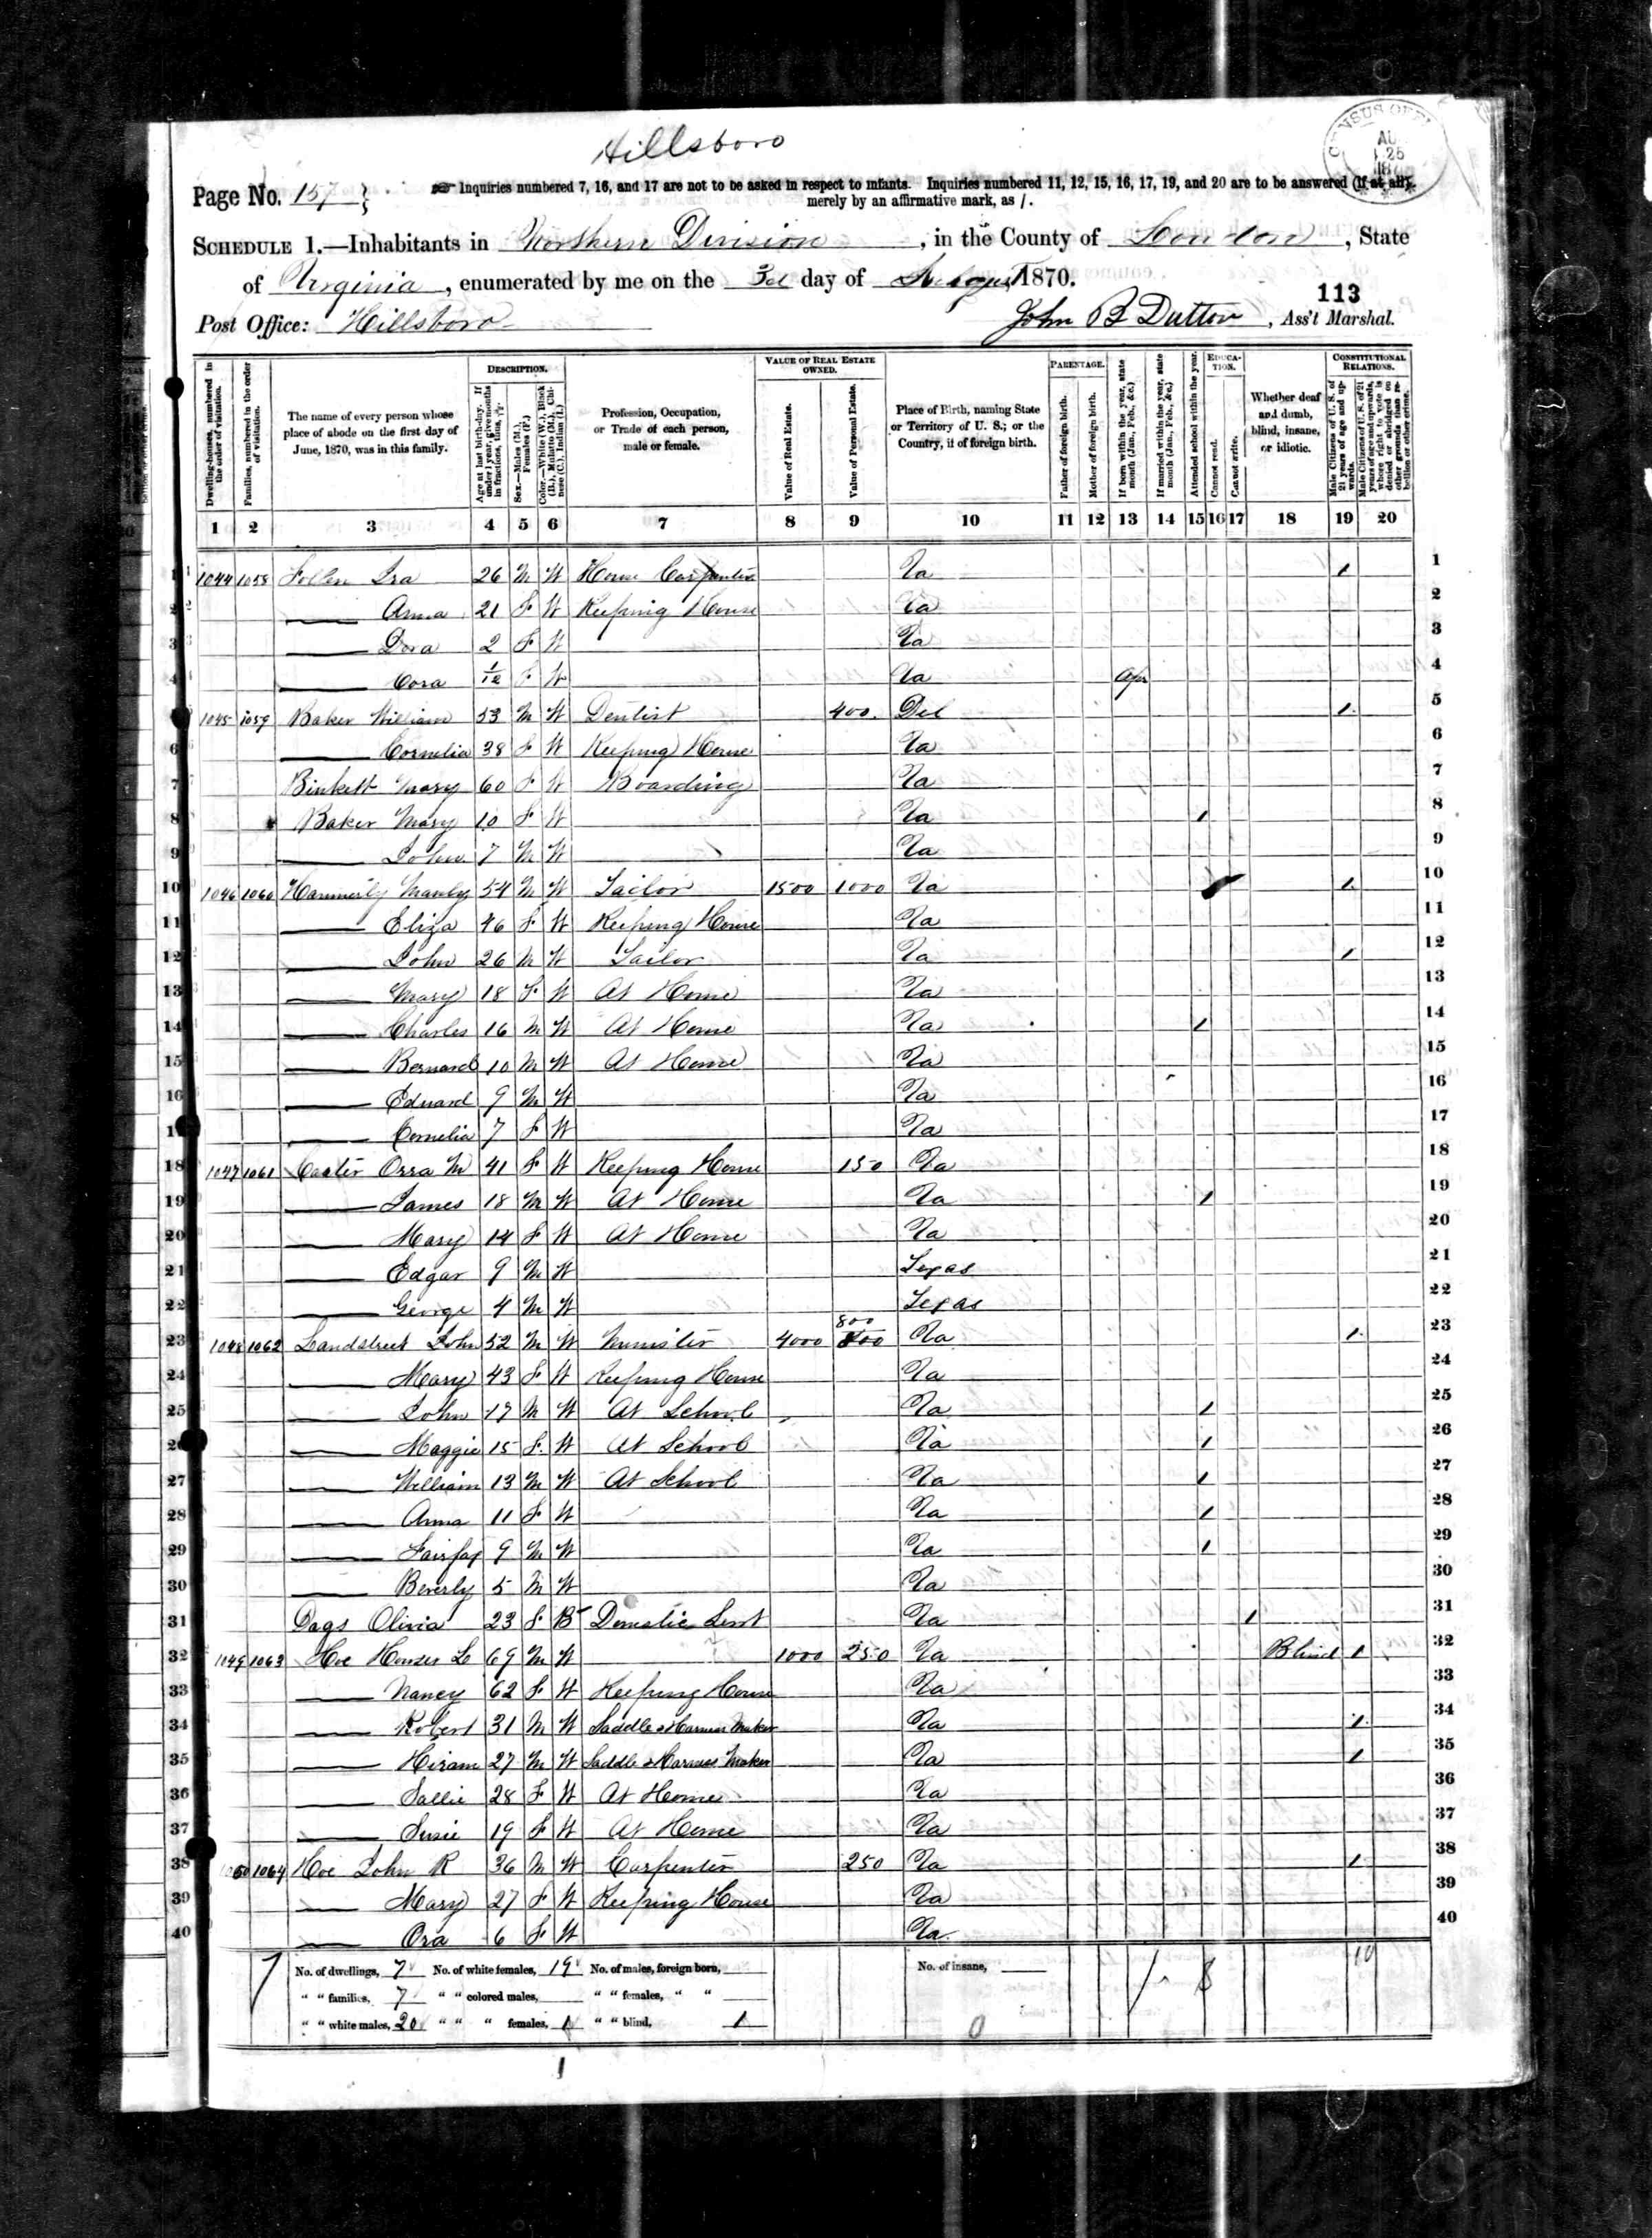 Hillsboro
CENSUS OFF
AU
25
187
Page No. 157
Inquiries numbered 7, 16, and 17 are not to be asked in respect to infants. Inquiries numbered 11, 12, 15, 16, 17, 19, and 20 are to be answered (if at all)
merely by an affirmative mark, as /.
SCHEDULE 1.—Inhabitants in Northern Division, in the County of Loudon, State
of Virginia, enumerated by me on the 3d day of August, 1870.
113
Post Office: Hillsboro John B Dutton, Ass't Marshal.
Dwelling-houses, numbered in the order of visitation.
Families, numbered in the order of visitation.
The name of every person whose place of abode on the first day of June, 1870, was in this family.
DESCRIPTION.
Age at last birth-day. If under 1 year, give months in fractions, thus, 3/12.
Sex.—Males (M.), Females (F.)
Color.—White (W.), Black (B.), Mulatto (M.), Chinese (C.), Indian (I.)
Profession, Occupation, or Trade of each person, male or female.
VALUE OF REAL ESTATE OWNED.
Value of Real Estate.
Value of Personal Estate.
Place of Birth, naming State or Territory of U. S.; or the Country, if of foreign birth.
PARENTAGE.
Father of foreign birth.
Mother of foreign birth.
If born within the year, state month (Jan., Feb., &c.)
If married within the year, state month (Jan., Feb., &c.)
Attended school within the year.
EDUCATION.
Cannot read.
Cannot write.
Whether deaf and dumb, blind, insane, or idiotic.
CONSTITUTIONAL RELATIONS.
Male Citizens of U. S. of 21 years of age and upwards.
Male Citizens of U. S. of 21 years of age and upwards, whose right to vote is denied or abridged on other grounds than rebellion or other crime.
1 2 3 4 5 6 7 8 9 10 11 12 13 14 15 16 17 18 19 20
1 1044 1058 Ira 26 M W House Carpenter Va 1 1
2 Anna 21 F W Keeping House Va 2
3 Dora 2 F W Va 3
4 Cora 1/12 F W Va Apr 4
1045 1059 Baker William 53 M W Dentist 400 Del 1 5
6 Cornelia 38 F W Keeping House Va 6
7 Mary 60 F W Boarding Va 7
8 Baker Mary 10 F W Va 1 8
9 John 7 M W Va 9
10 1046 1060 Hammerly Manly 54 M W Tailor 1500 1000 Va 1 10
11 Eliza 46 F W Keeping House Va 11
12 John 26 M W Tailor Va 1 12
13 Mary 18 F W At Home Va 13
14 Charles 16 M W At Home Va 1 14
15 Bernard 10 M W At Home Va 15
16 Edward 9 M W Va 16
1 Cornelia 7 F W Va 17
18 1047 1061 Orra M 41 F W Keeping House 150 Va 18
19 James 18 M W At Home Va 1 19
20 Mary 14 F W At Home Va 20
21 Edgar 9 M W Texas 21
22 George 4 M W Texas 22
23 1048 1062 Landstreet John 52 M W Minister 4000 800 800 Va 1 23
24 Mary 43 F W Keeping House Va 24
25 John 17 M W At School Va 1 25
2 Maggie 15 F W At School Va 1 26
27 William 13 M W At School Va 1 27
28 Anna 11 F W Va 1 28
29 Fairfax 9 M W Va 1 29
30 Beverly 5 M W Va 30
31 Olivia 23 F B Domestic Servt Va 1 31
32 1049 1063 69 M W 1000 250 Va Blind 1 32
33 Nancy 62 F W Keeping House Va 33
34 Robert 31 M W Saddle & Harness Maker Va 1 34
35 Hiram 27 M W Saddle & Harness Maker Va 1 35
36 Sallie 28 F W At Home Va 36
37 Susie 19 F W At Home Va 37
38 1050 1064 John R 36 M W Carpenter 250 Va 1 38
39 Mary 27 F W Keeping House Va 39
40 Ora 6 F W Va 40
No. of dwellings, 7 No. of white females, 19 No. of males, foreign born, No. of insane, 1 8 10
" " families, 7 " " colored males, " " females, " "
" " white males, 20 " " " females, 1 " " blind, 1 0
1